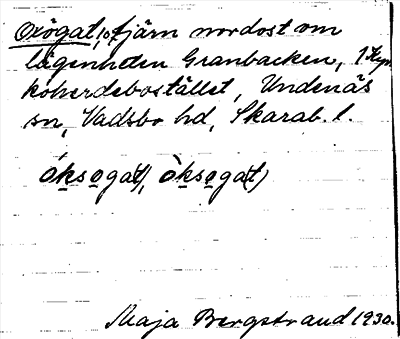 Oxögat, tjärn nordost om
lägenheten Granbacken, 1 Kyrk
koherdebostället, Undenäs
sn, Vadsbo hd, Skarab. l.
óksogat), òksogat)
Maja Bergstrand 1930.